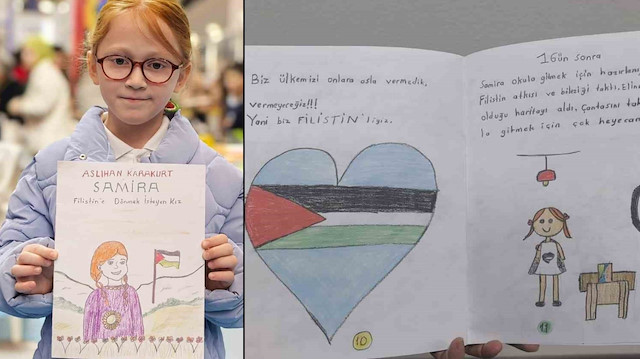 ASLIHAN KARAKURT
SAMİRA
Filistin'e Dönmek İsteyen Kız
Biz ülkemizi onlara asla vermedik,
vermeyeceğiz!!!
Yani biz FİLİSTİN'liyiz.
10
1 Gün sonra
Samira okula gitmek için hazırlan
Filistin atkısı ve bilekliği taktı. Elin
olduğu haritayı aldı. Çantasını tak
la gitmek için çok heyecan
11